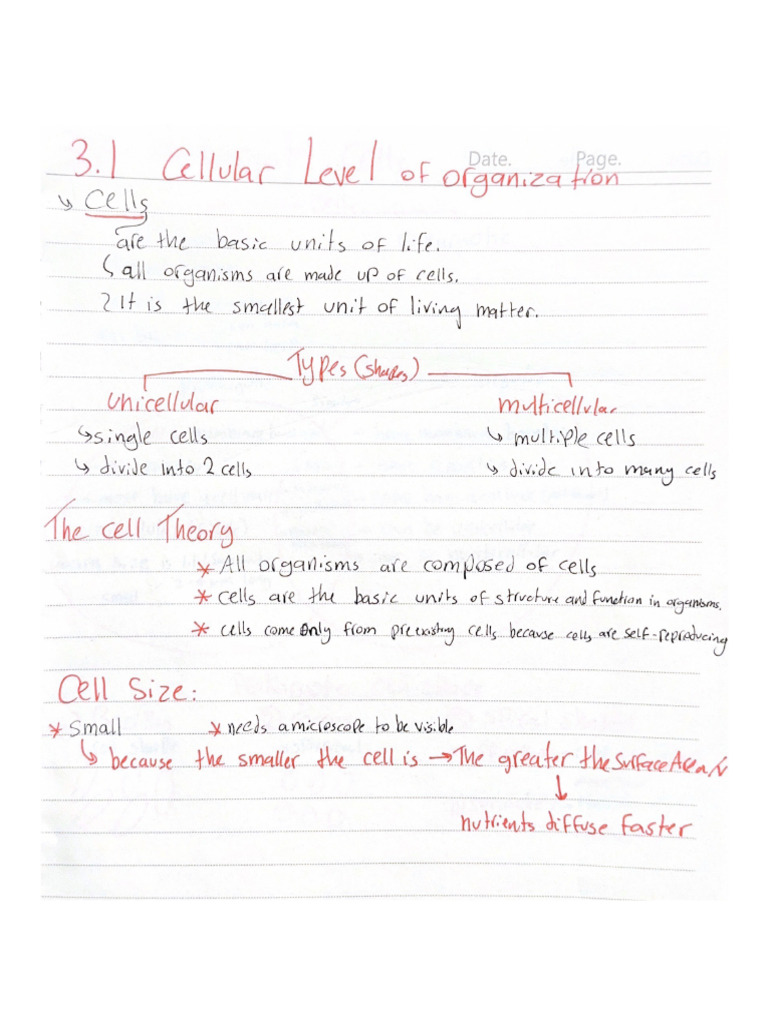 Date. Page.
3.1 Cellular Level of organization
↳ Cells
are the basic units of life.
↳ all organisms are made up of cells.
It is the smallest unit of living matter.
Types (shapes)
unicellular multicellular
↳ single cells ↳ multiple cells
↳ divide into 2 cells ↳ divide into many cells
The cell Theory
* All organisms are composed of cells
* cells are the basic units of structure and function in organisms.
* cells come only from preexisting cells because cells are self-reproducing
Cell Size:
* Small * needs a microscope to be visible
↳ because the smaller the cell is → The greater the Surface Area
↓
nutrients diffuse faster